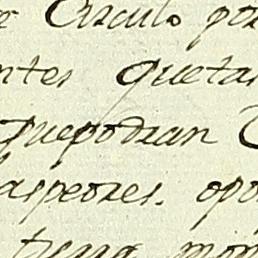 Circulo por
ntes quetan
quepodian
aspeores. opo
tiena mon